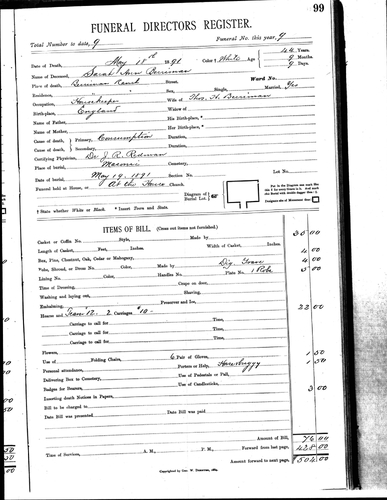 99
FUNERAL DIRECTORS REGISTER.
Total Number to date, 9 Funeral No. this year, 9
Date of Death, May 18th 1891 Color † White Age 44 Years.
Name of Deceased, Sarah Ann Berriman 9 Months
Place of death, Berriman Street, Ward No. 9 Days.
Residence, Sex, Single, Married, Yes
Occupation, Housekeeper Wife of Thos. H. Berriman
Birthplace, England Widow of
Name of Father, His Birth-place, *
Name of Mother, Her Birth-place, *
Cause of death, Primary, Consumption Duration,
Cause of death, Secondary, Duration,
Certifying Physician, Dr. J. R. Redman
Place of burial, Masonic Cemetery,
Date of burial, May 19, 1891 Section No. Lot No.
Funeral held at House, or At the House Church,
† State whether White or Black. * Insert Town and State.
Diagram of Burial Lot.
Put in the Diagram any mark
Designate site of Monument thus
ITEMS OF BILL. (Cross out items not furnished.)
Casket or Coffin No. Style, 35 00
Length of Casket, Feet, Inches. Width of Casket, Inches. 4 00
Box, Pine, Chestnut, Oak, Cedar or Mahogany, Made by Dig. Grave 4 00
Robe, Shroud, or Dress No. Color, Plate No. 1 Robe 5 00
Lining No. Color, Handles No.
Time of Dressing, Crape on door,
Washing and laying out, Shaving,
Embalming, Preserver and Ice,
Hearse and Team 12. 2 Carriages $10- 22 00
Carriage to call for Time,
Carriage to call for Time,
Carriage to call for Time,
Carriage to call for Time,
Flowers,
Use of Folding Chairs, 6 Pair of Gloves, 1 50
Personal attendance, Porters or Help, 1 50
Delivering Box to Cemetery, Use of Pedestals or Pall,
Badges for Bearers, Use of Candlesticks, 3 00
Inserting death Notices in Papers,
Bill to be charged to
Date Bill was presented Date Bill was paid
Amount of Bill, 76 00
Time of Services, A. M., P. M., Forward from last page, 428 00
Amount forward to next page, 504 00